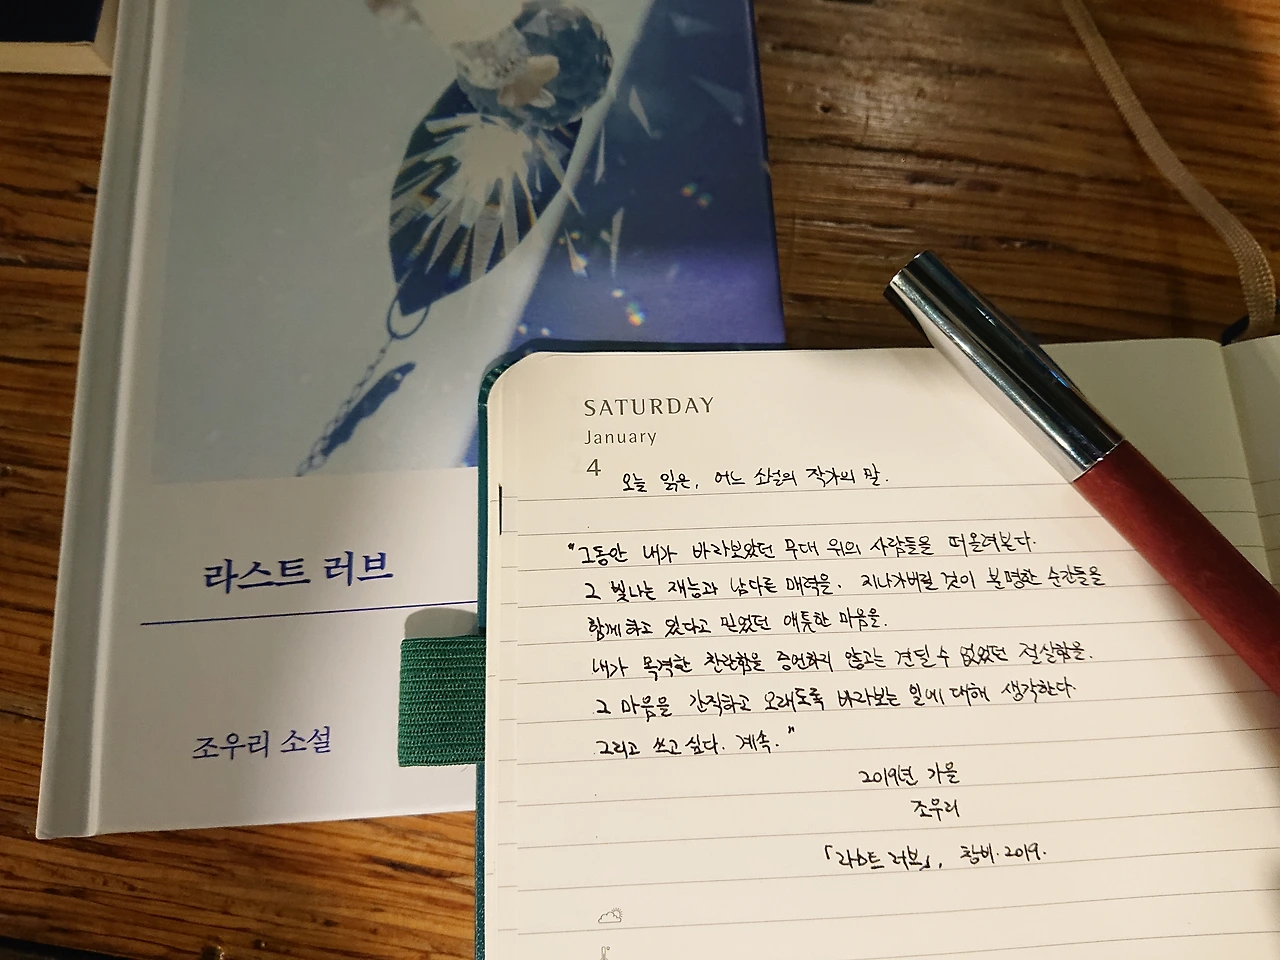 라스트 러브
조우리 소설
SATURDAY
January
4
오늘 읽은, 어느 소설의 작가의 말.
"그동안 내가 바라보았던 무대 위의 사람들을 떠올려본다.
그 빛나는 재능과 남다른 매력을. 지나가버릴 것이 분명한 순간들을
함께하고 있다고 믿었던 애틋한 마음을.
내가 목격한 찬란함을 증언하지 않고는 견딜 수 없었던 절실함을.
그 마음을 간직하고 오래도록 바라보는 일에 대해 생각한다.
그리고 쓰고 싶다. 계속."
2019년 가을
조우리
「라스트 러브」, 창비. 2019.